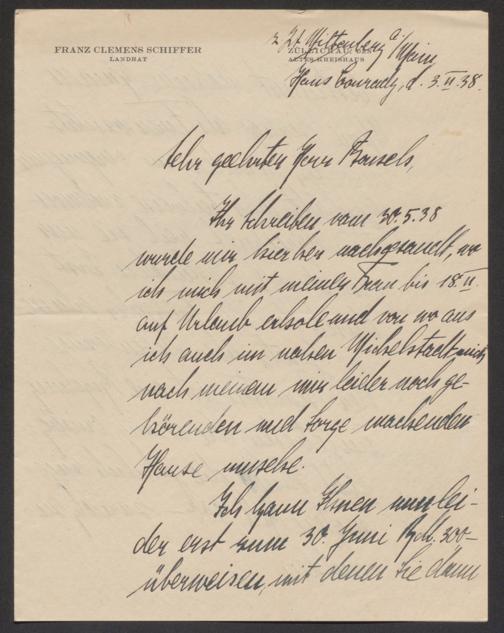 FRANZ CLEMENS SCHIFFER
LANDRAT
ZÜLLICHAU, DEN
ALTES KREISHAUS
z. Zt. Miltenberg a/Main
Haus Conrady, d. 3.VI.38.
Sehr geehrter Herr Bonsels,
Ihr Schreiben vom 30.5.38
wurde mir hierher nachgesandt, wo
ich mich mit meiner Frau bis 18.VI.
auf Urlaub erhole und von wo aus
ich auch im nahen Michelstadt mich
nach meinem mir leider noch ge-
hörenden und Sorge machenden
Hause umsehe.
Ich kann Ihnen nun lei-
der erst zum 30. Juni RM. 300–
überweisen, mit denen Sie dann